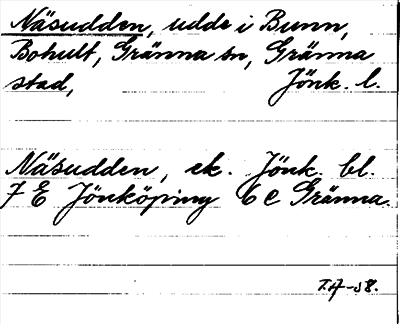 Näsudden, udde i Bunn,
Bohult, Gränna sn, Gränna
stad, Jönk. l.
Näsudden, ek. Jönk. bl.
7 E Jönköping 6 e Gränna.